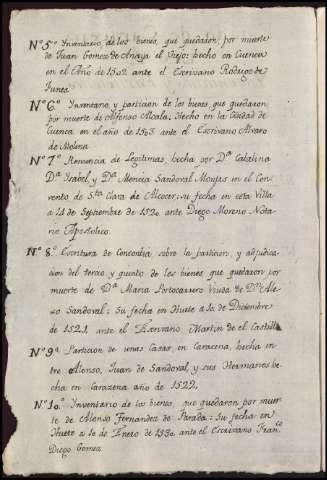 Nº. 5º Inventario de los bienes, que quedaron por muerte
de Juan Gomez de Anaya el Viejo: hecho en Cuenca
en el Año de 1502 ante el Escrivano Rodrigo de
Nº. 6º Inventario, y particion de los bienes, que quedaron
por muerte de Alfonso Alcala. Hecho en la Ciudad de
Cuenca en el año de 1503 ante el Escrivano Alvaro
de Molina
Nº. 7º Renuncia de Legitimas, hecha por Dª. Catalina
Dª. Ysabel, y Dª. Mencia Sandoval Monjas en el Con-
vento de Sta. Clara de Alcocer: su fecha en esta Villa
a 14 de Septiembre de 1520 ante Diego Moreno Nota-
rio Apostolico.
Nº. 8º. Escritura de Concordia sobre la particion, y adjudica-
cion del tercio, y quinto de los bienes que quedaron por
muerte de Dª. Maria Portocarrero Viuda de Dn. Alon-
zo Sandoval: Su fecha en Huete a 10 de Diciembre
de 1521, ante el Escrivano Martin de el Castillo
Nº. 9ª. Particion de unas Casas, en Caracena, hecha en-
tre Alonso, Juan de Sandoval, y sus Hermanos he-
cha en Caracena año de 1522.
Nº. 10º. Inventario de los bienes, que quedaron por muer-
te de Alonso Fernandez de Parada: su fecha en
Huete a 10 de Enero de 1530 ante el Escrivano Franco.
Diego Gomez